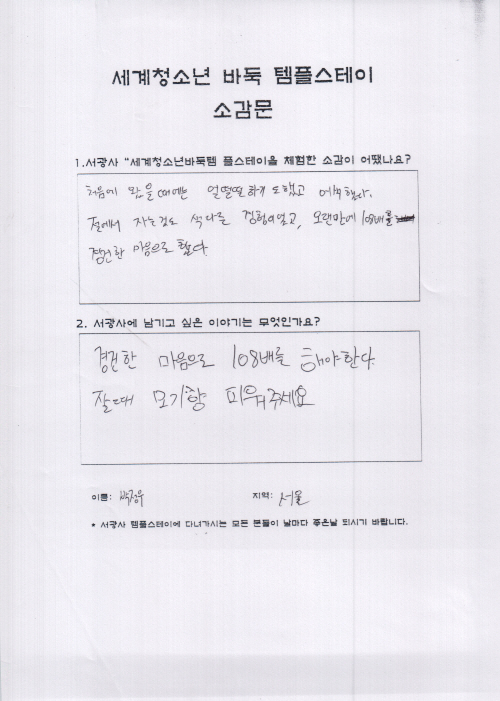 세계청소년 바둑 템플스테이
소감문
1.서광사 "세계청소년바둑템 플스테이을 체험한 소감이 어땠나요?
처음에 왔을때에는 얼떨떨하기도했고 어색했다.
절에서 자는것도 색다른 경험이었고, 오랜만에 108배를
경건한 마음으로 했다
2. 서광사에 남기고 싶은 이야기는 무엇인가요?
경건한 마음으로 108배를 해야한다.
잘때 모기향 피워주세요
이름: 박정우
지역: 서울
* 서광사 템플스테이에 다녀가시는 모든 분들이 날마다 좋은날 되시기 바랍니다.